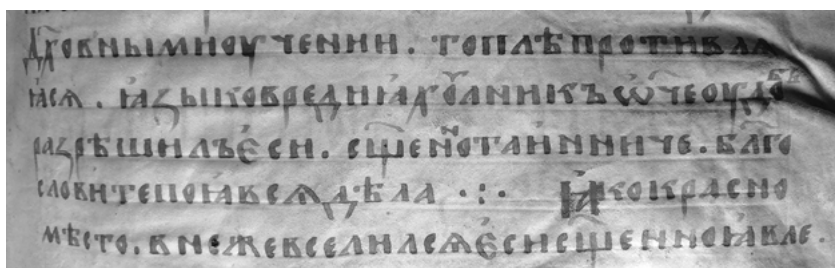 Дх҃овнымиоученїи . топлѣпротивлѧ
ꙗсѧ . ꙗзыковреднїꙗхѹлникъ ѿчеѹдо́бь
разрѣшилъєси . сщ҃еннотаинниче . благо
словитепоꙗвсѧдѣла ·:· Ꙗкокрасно
мѣсто . внежевселилсѧєсисщ҃енноꙗвле .